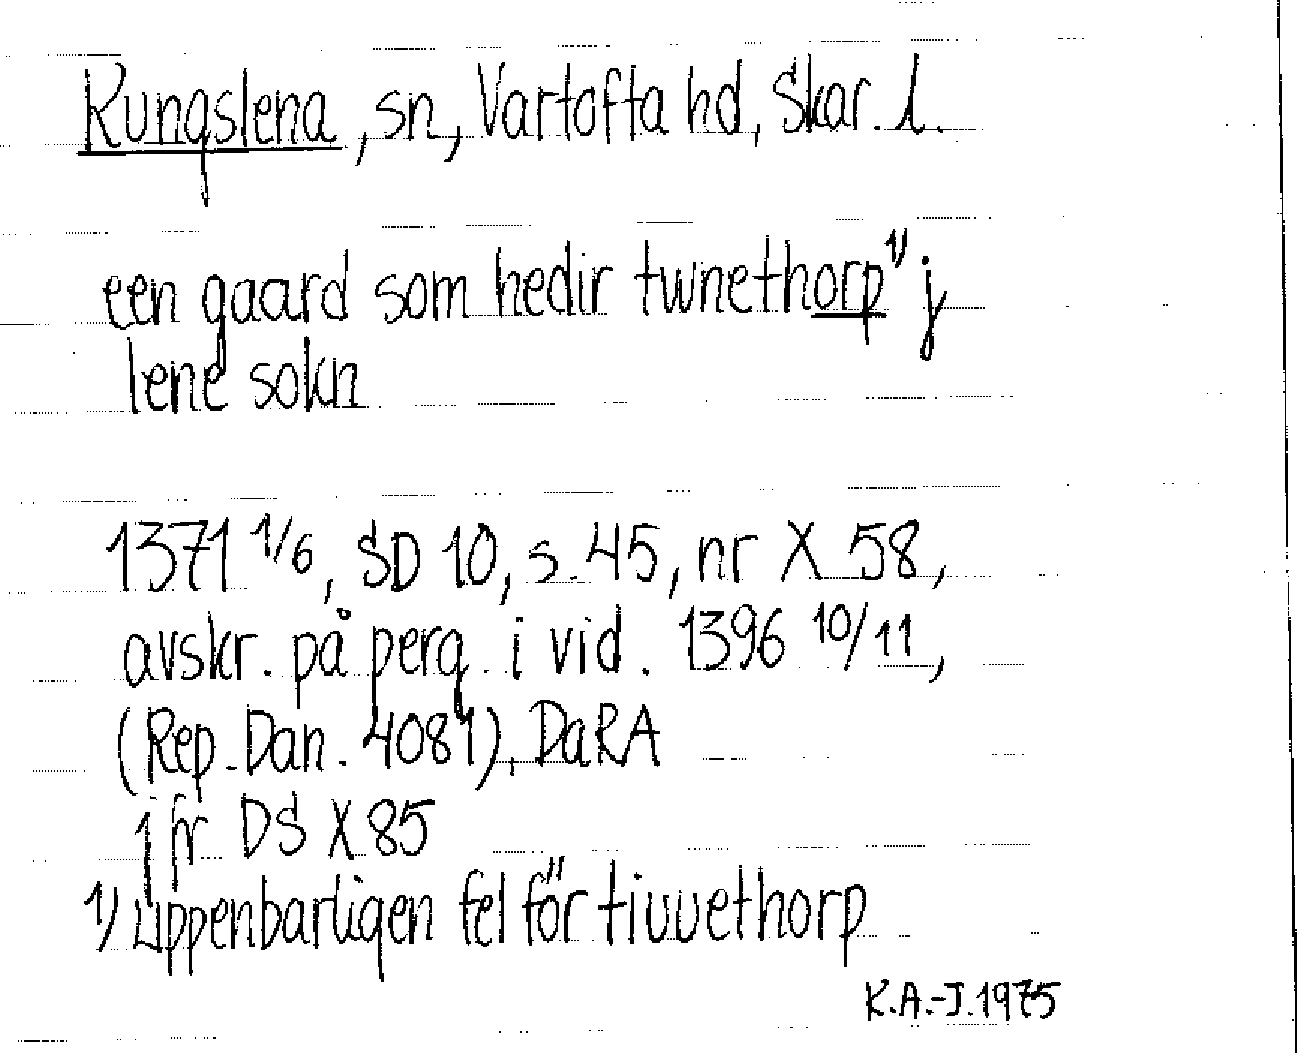 Kungslena, sn, Vartofta hd, Skar. l.
een gaard som hedir twnethorp 1) j
lene sokn
1371 1/6, SD 10, s. 45, nr X 58,
avskr. på perg. i vid. 1396 10/11,
(Rep. Dan. 4081), DaRA
jfr DS X 85
1) uppenbarligen fel för tiuuethorp
K.A.-J. 1975